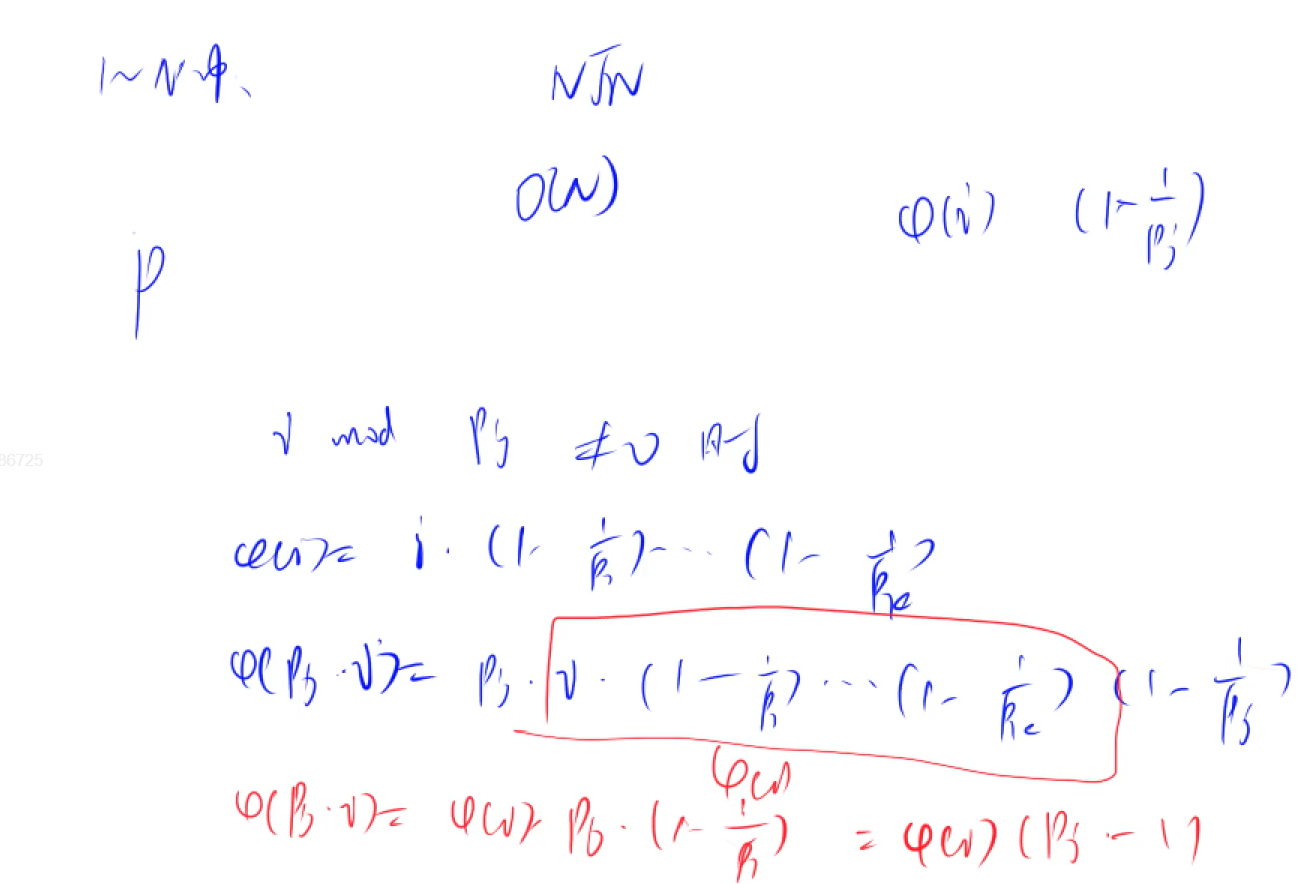 1~N中、 N√N
O(N)
φ(i) (1-1/Pj)
P
i mod Pj ≠0 时
φ(i)= i·(1-1/P1)...(1-1/Pk)
φ(Pj·i)= Pj·i·(1-1/P1)...(1-1/Pk)(1-1/Pj)
φ(i)
φ(Pj·i)= φ(i)×Pj·(1-1/Pj) = φ(i)(Pj-1)
86725